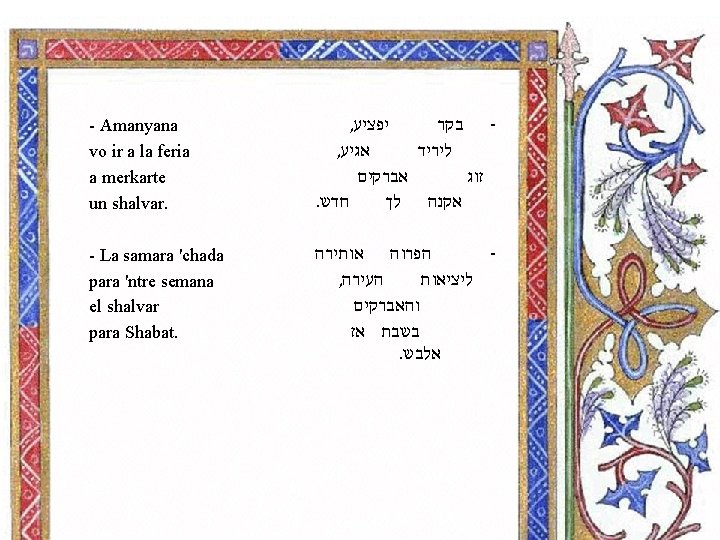 - Amanyana
vo ir a la feria
a merkarte
un shalvar.
- La samara 'chada
para 'ntre semana
el shalvar
para Shabat.
- בקר יפציע,
ליריד אגיע,
זוג אברקים
אקנה לך חדש.
- הפרוה אותירה
ליציאות העירה,
והאברקים
בשבת אז
אלבש.